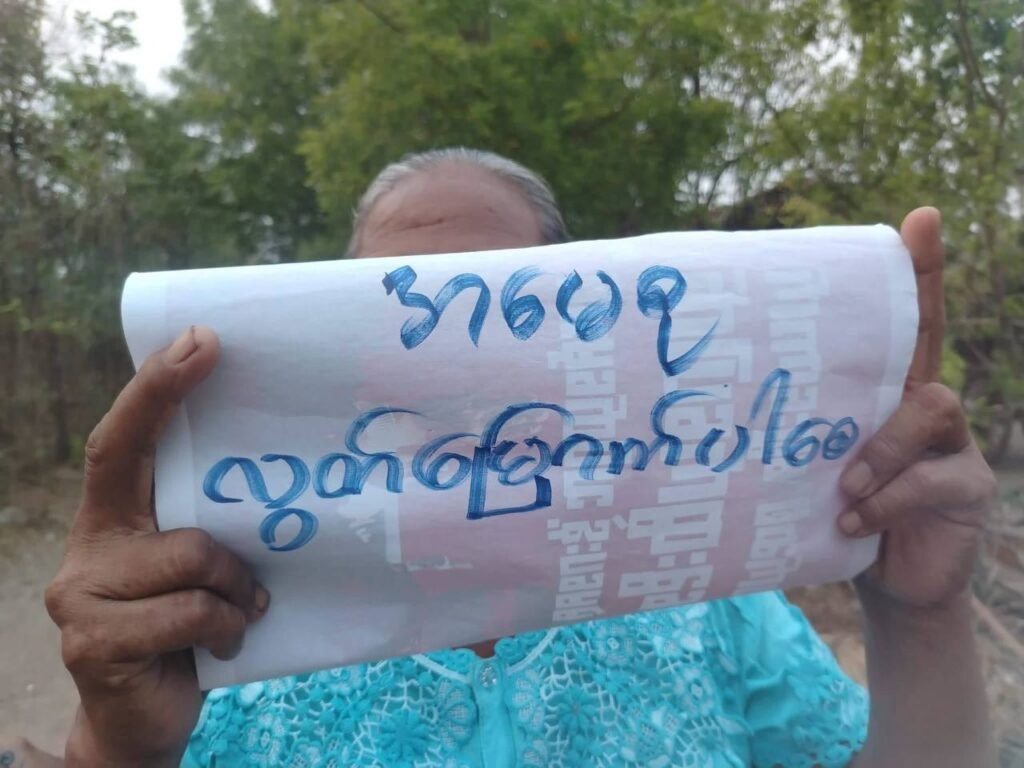 အာမေစု
လွတ်မြောက်ပါစေ